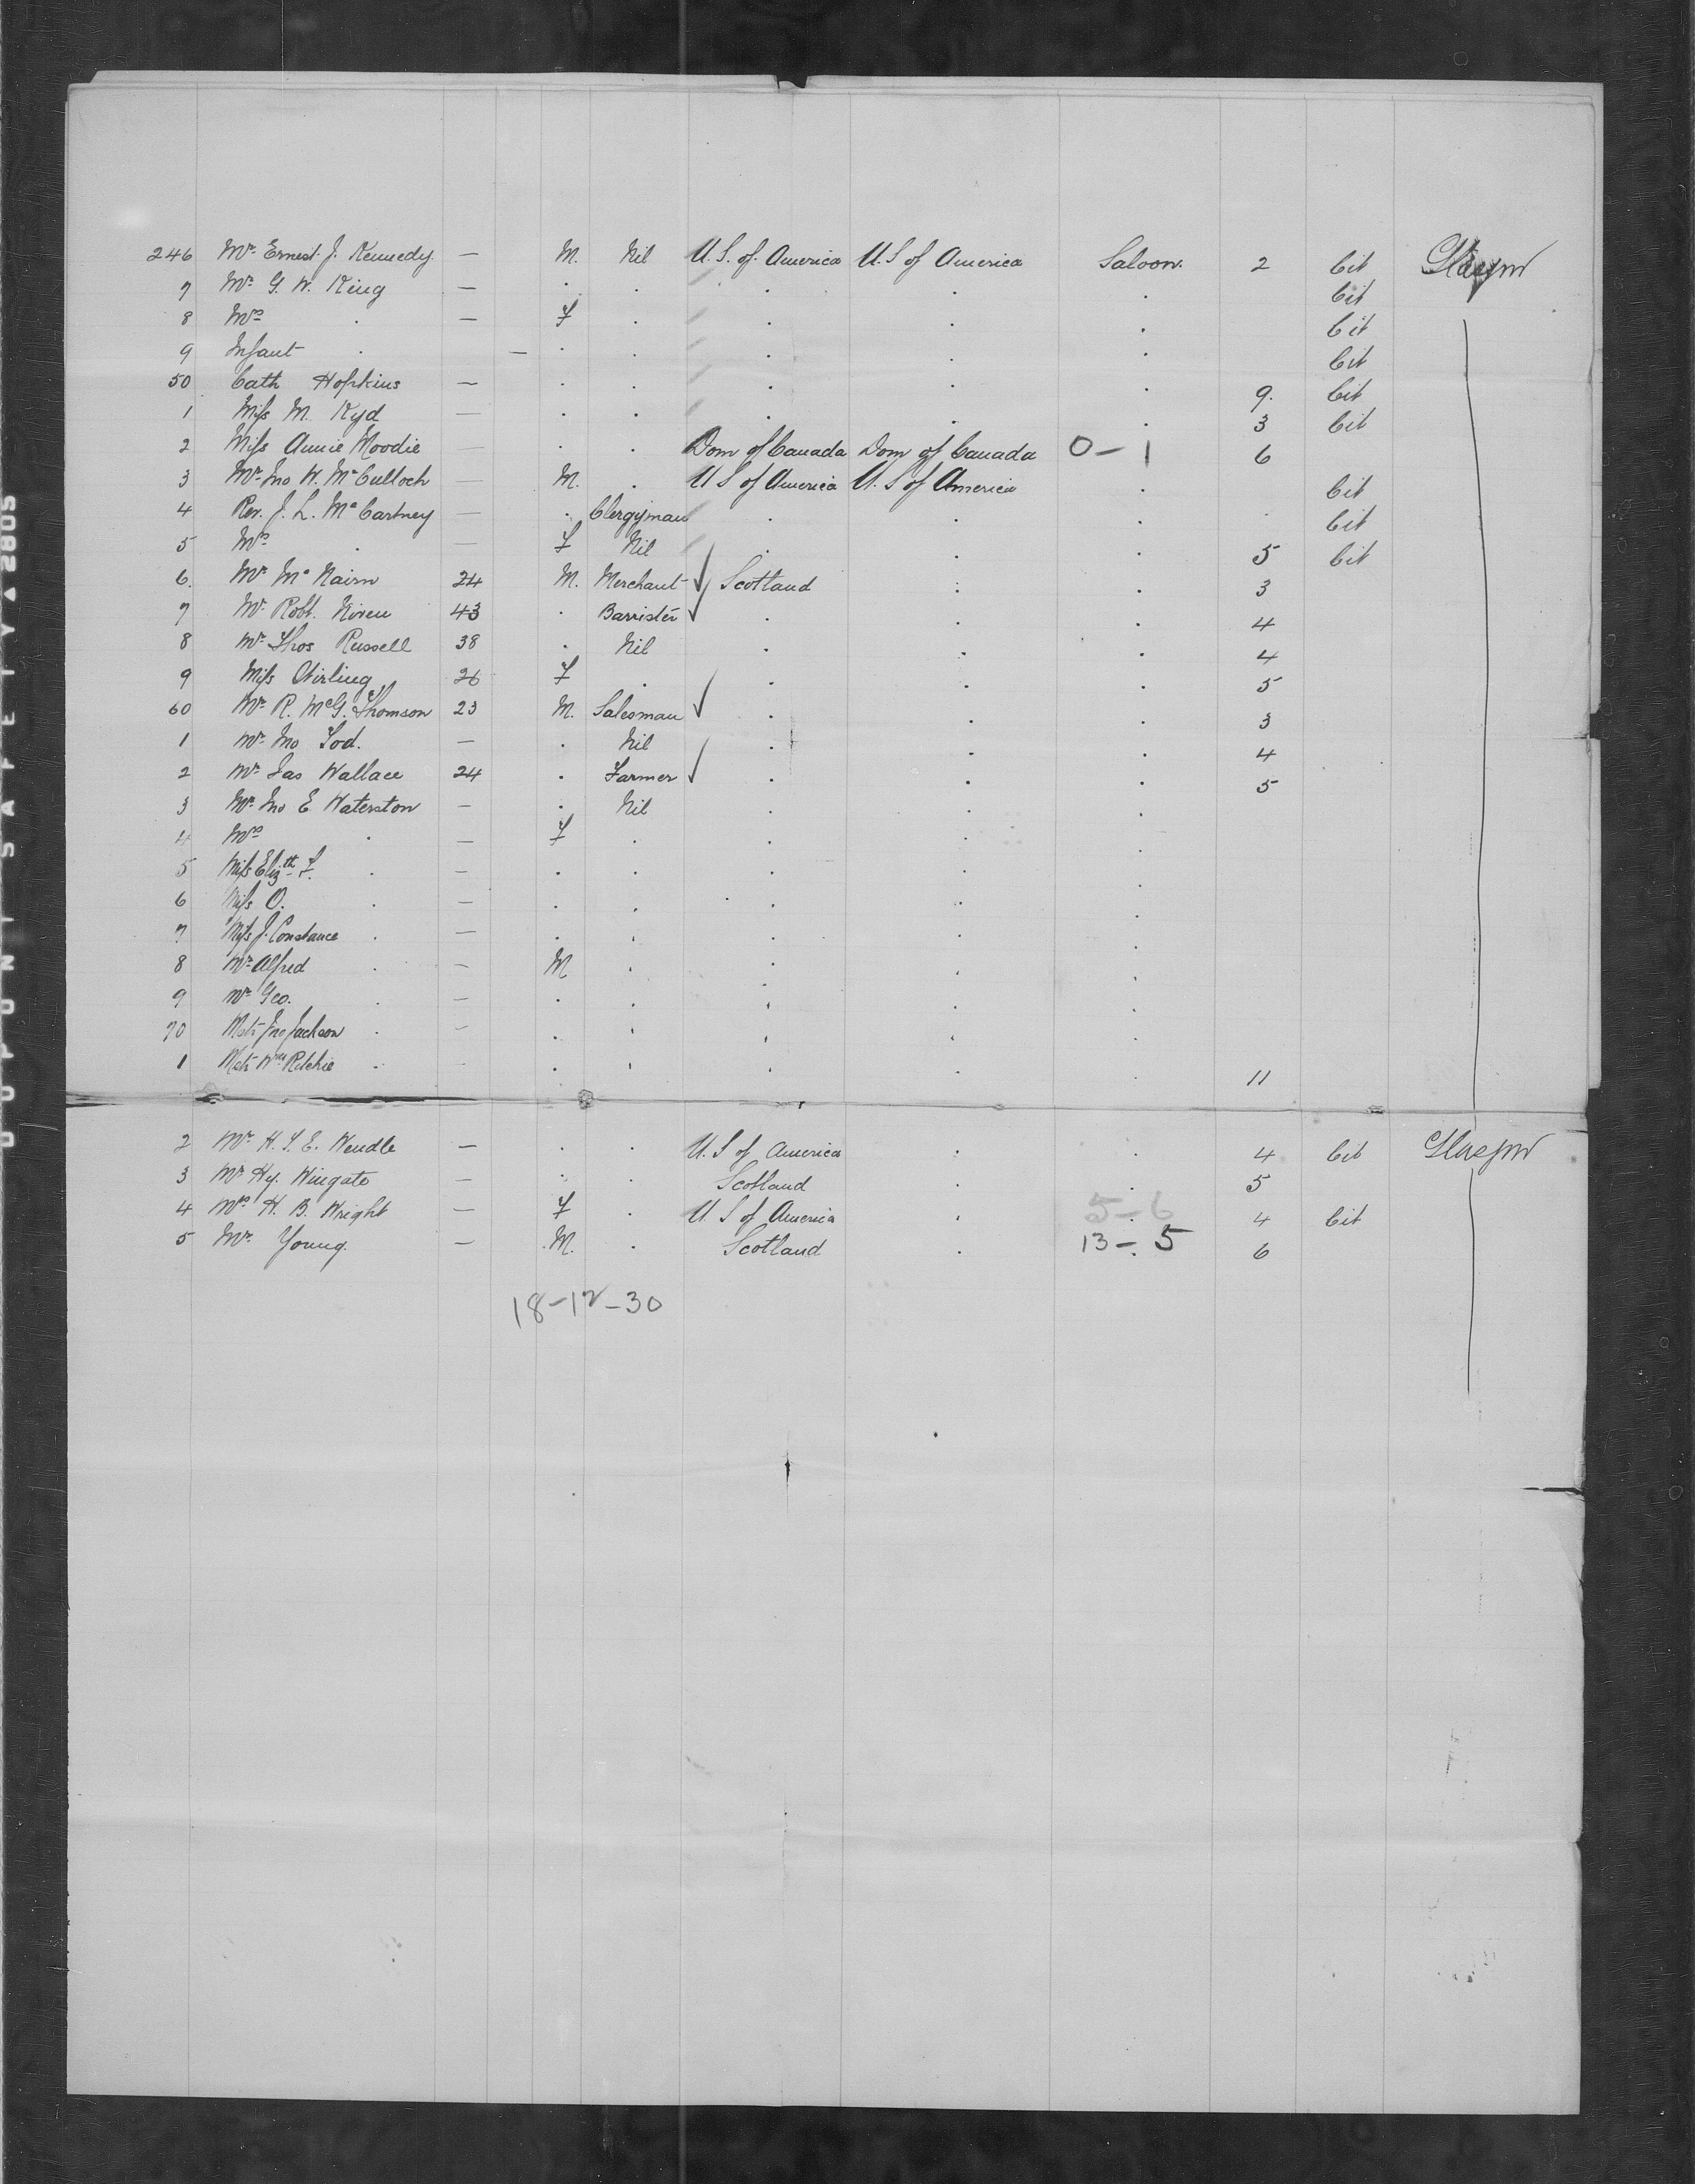 246 Mr Ernest J. Kennedy — M. Nil U.S. of America U.S of America Saloon. 2 Cit Glasgow
7 Mr G. W. King — . . . . . Cit
8 Mrs . — F . . . . Cit
9 Infant . — . . . . . Cit
50 Cath Hopkins — . . . . . 9. Cit
1 Miss M. Kyd — . . . . . 3 Cit
2 Miss Annie Moodie — . . Dom of Canada Dom of Canada 0-1 6
3 Mr Jno W. McCulloch — M. . U S of America U.S of America . Cit
4 Rev. J. L. McCartney — . Clergyman . . . . Cit
5 Mrs . — F Nil . . . 5 Cit
6. Mr McNairn 24 M. Merchant ✓ Scotland . . 3
7 Mr Robt. Niven 43 . Barrister ✓ . . . 4
8 Mr Thos Russell 38 . Nil . . . 4
9 Miss Stirling 26 F . . . . 5
60 Mr R. McG. Thomson 23 M. Salesman ✓ . . . 3
1 Mr Jno Tod. — . Nil . . . 4
2 Mr Jas Wallace 24 . Farmer ✓ . . . 5
3 Mr Jno E Waterston — . Nil . . .
4 Mrs . — F . . . .
5 Miss Elizth F. . — . . . . .
6 Miss O. . — . . . . .
7 Miss J. Constance . — . . . . .
8 Mr Alfred . — M . . . .
9 Mr Geo. . — . . . . .
70 Mstr Jno Jackson . — . . . . .
1 Mstr Wm Ritchie . — . . . . . 11
2 Mr H. Y. E. Wendle — . . U.S of America . . 4 Cit Glasgow
3 Mr Hy. Wingate — . . Scotland . . 5
4 Mrs H. B. Wright — F . U S of America . 5-6 4 Cit
5 Mr Young. — M. . Scotland . 13-5 6
18-12-30
DUPONT SAFETY ▲ 2805